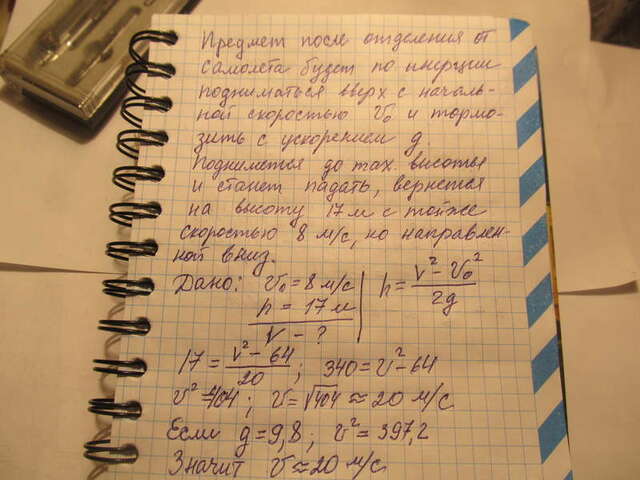 Предмет после отделения от
самолёта будет по инерции
подниматься вверх с началь-
ной скоростью V₀ и тормо-
зить с ускорением g.
Поднимется до max высоты
и станет падать, вернется
на высоту 17 м с той же
скоростью 8 м/с, но направлен-
ной вниз.
Дано: V₀ = 8 м/с h = (V² - V₀²)/2g
h = 17 м
V - ?
17 = (V² - 64)/20 ; 340 = V² - 64
V² = 404 ; V = √404 ≈ 20 м/с
Если g = 9,8 ; V² = 397,2
Значит V ≈ 20 м/с